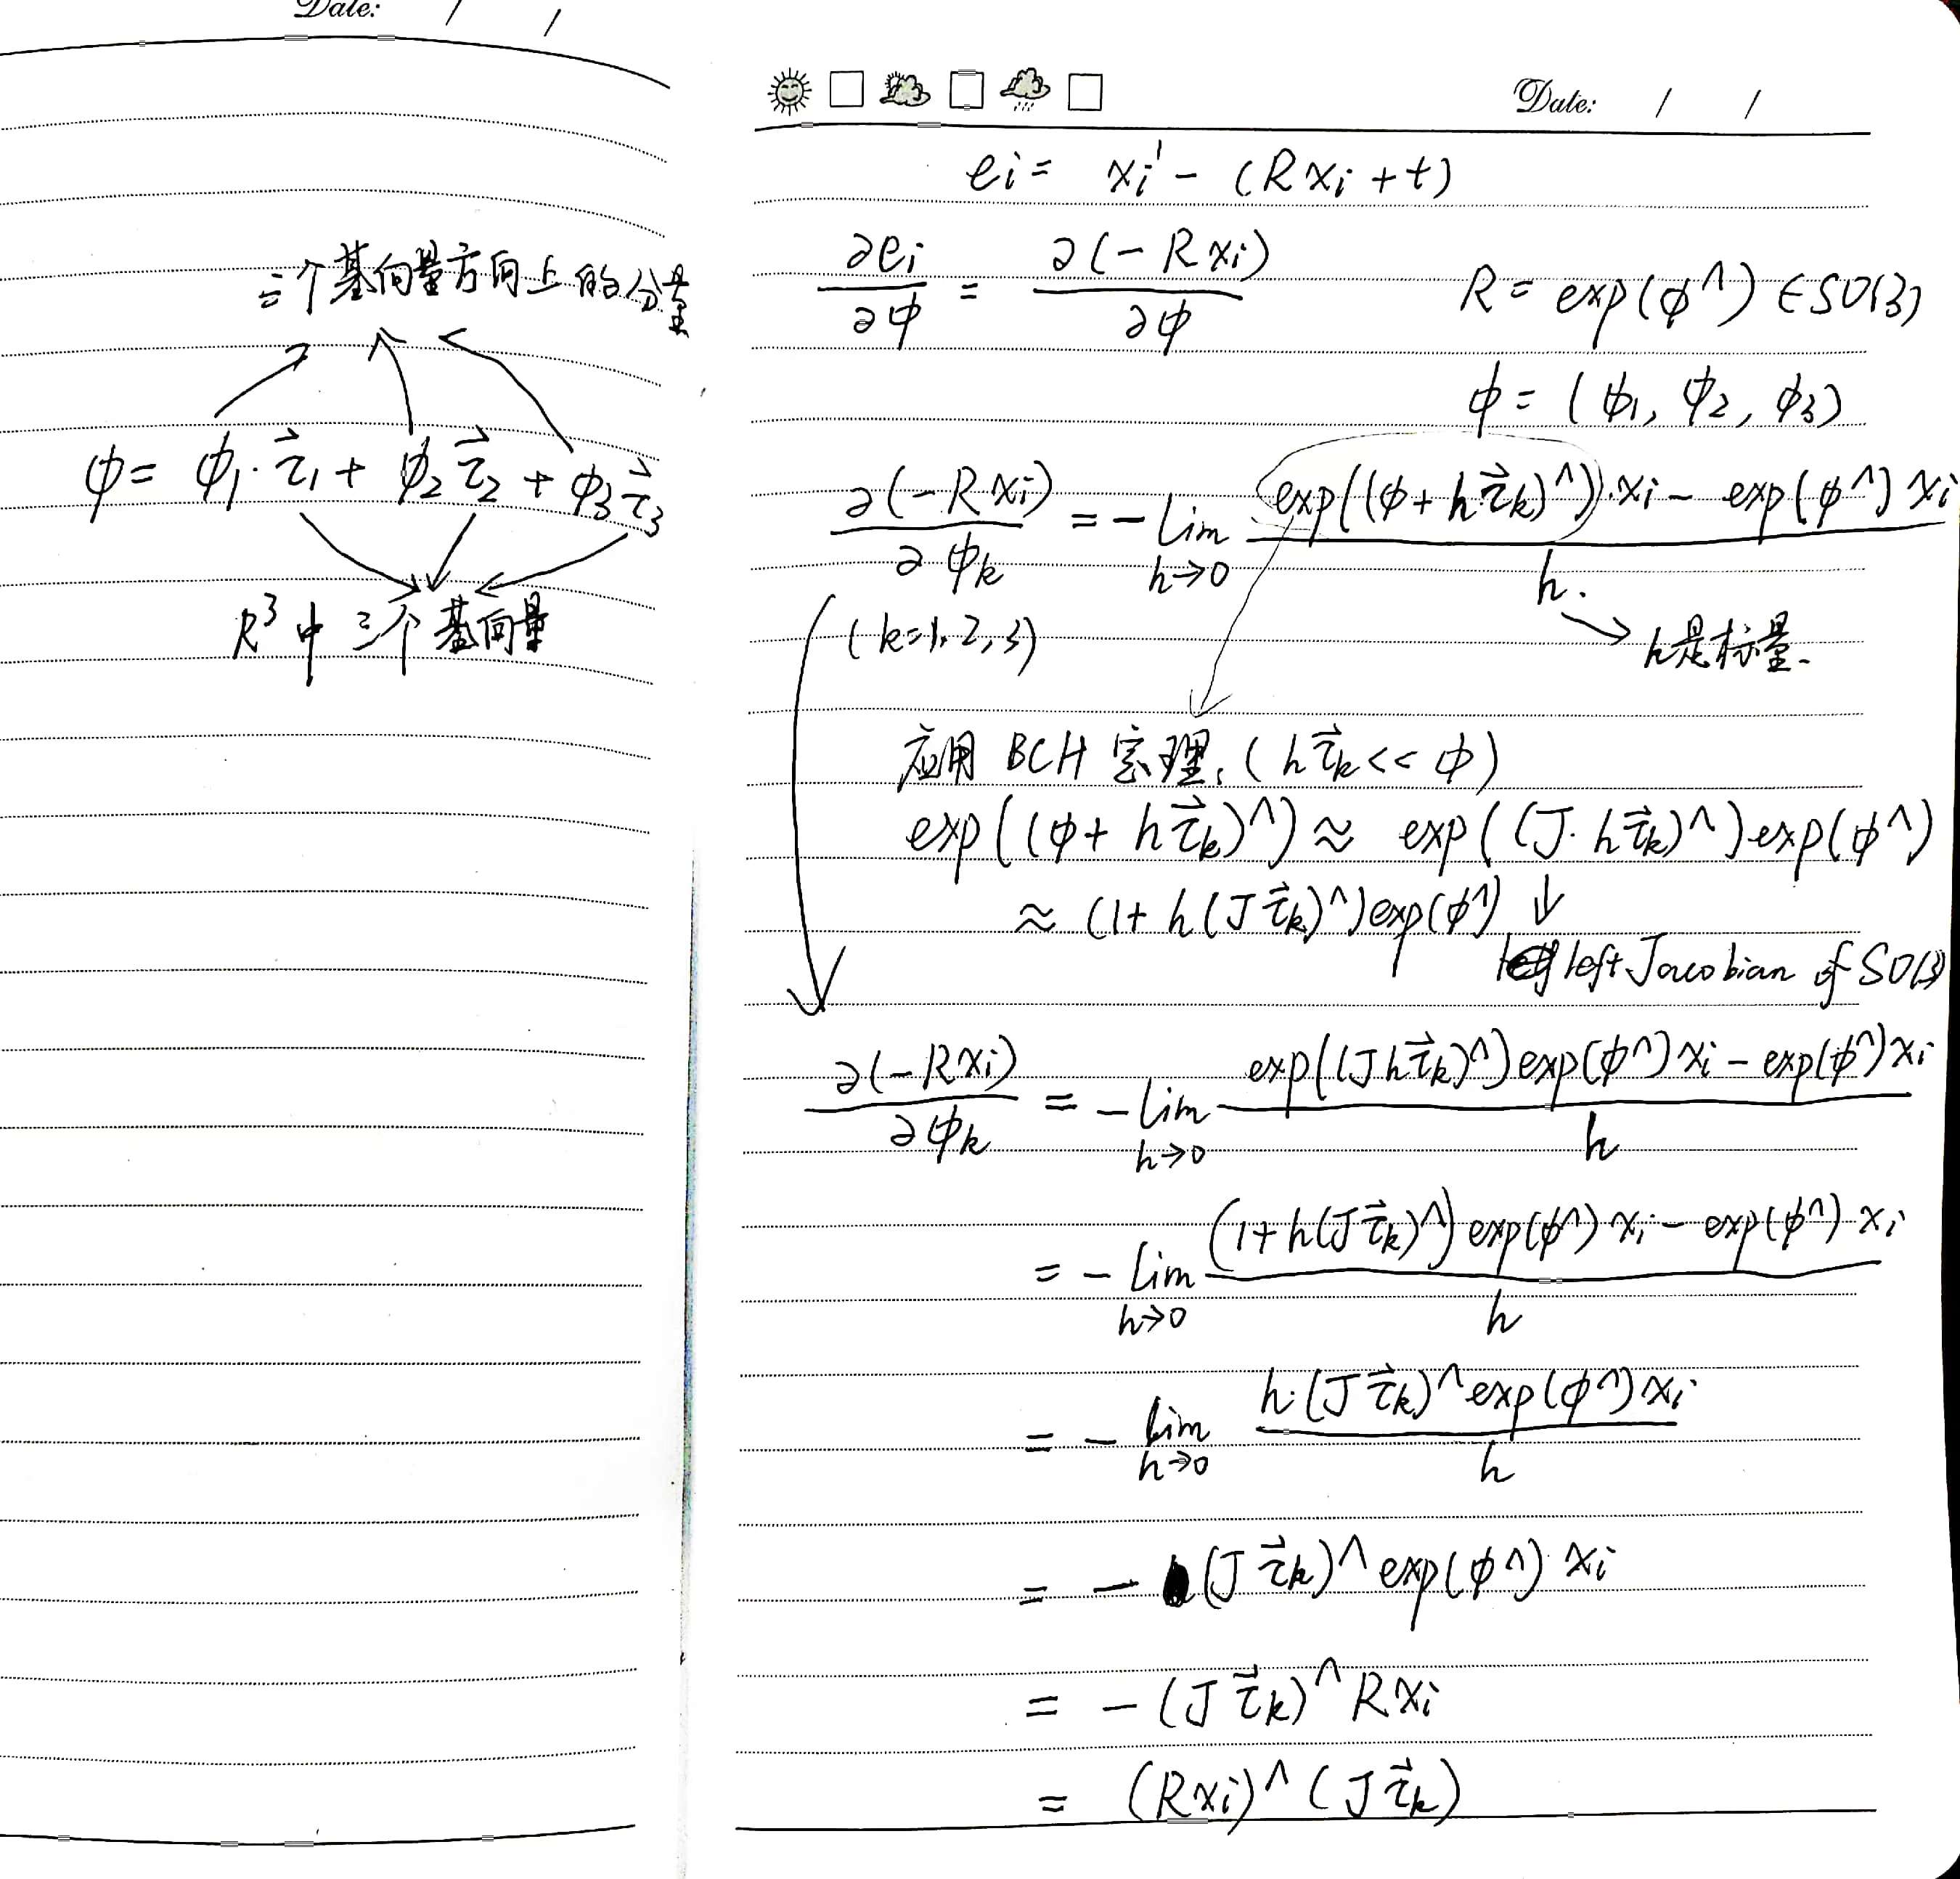 Date: / /
三个基向量方向上的分量
φ = φ₁·τ⃗₁ + φ₂τ⃗₂ + φ₃τ⃗₃
R³ 中 三个基向量
Date: / /
ei = xi' - (Rxi + t)
∂ei/∂φ = ∂(-Rxi)/∂φ    R = exp(φ^) ∈ SO(3)
φ = (φ₁, φ₂, φ₃)
∂(-Rxi)/∂φk = - lim h→0 [exp((φ + hτ⃗k)^)·xi - exp(φ^)xi] / h.
(k=1,2,3)
h是标量.
应用 BCH 定理, (hτ⃗k << φ)
exp((φ + hτ⃗k)^) ≈ exp((J·hτ⃗k)^)exp(φ^)
≈ (1 + h(Jτ⃗k)^)exp(φ^)
left Jacobian of SO(3)
∂(-Rxi)/∂φk = - lim h→0 [exp((Jhτ⃗k)^)exp(φ^)xi - exp(φ^)xi] / h
= - lim h→0 [(1 + h(Jτ⃗k)^)exp(φ^)xi - exp(φ^)xi] / h
= - lim h→0 [h·(Jτ⃗k)^exp(φ^)xi] / h
= - (Jτ⃗k)^exp(φ^)xi
= - (Jτ⃗k)^Rxi
= (Rxi)^(Jτ⃗k)